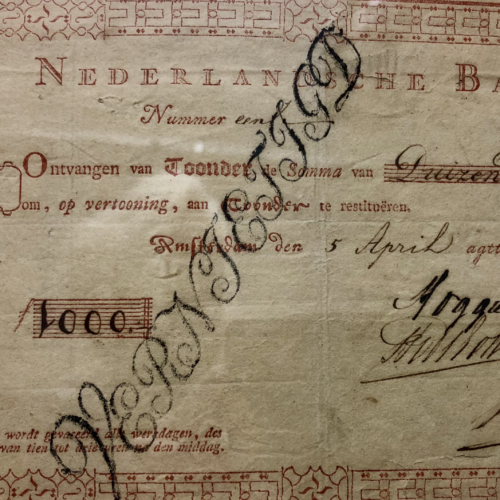 NEDERLANDSCHE BA
Nummer een
Ontvangen van Toonder de Somma van Duizen
om, op vertooning, aan Toonder te restitueëren.
Amsterdam den 5 April agtt
ƒ 1000.
VERNIETIGD
wordt gevaceerd alle werkdagen, des
van tien tot drie uren na den middag.